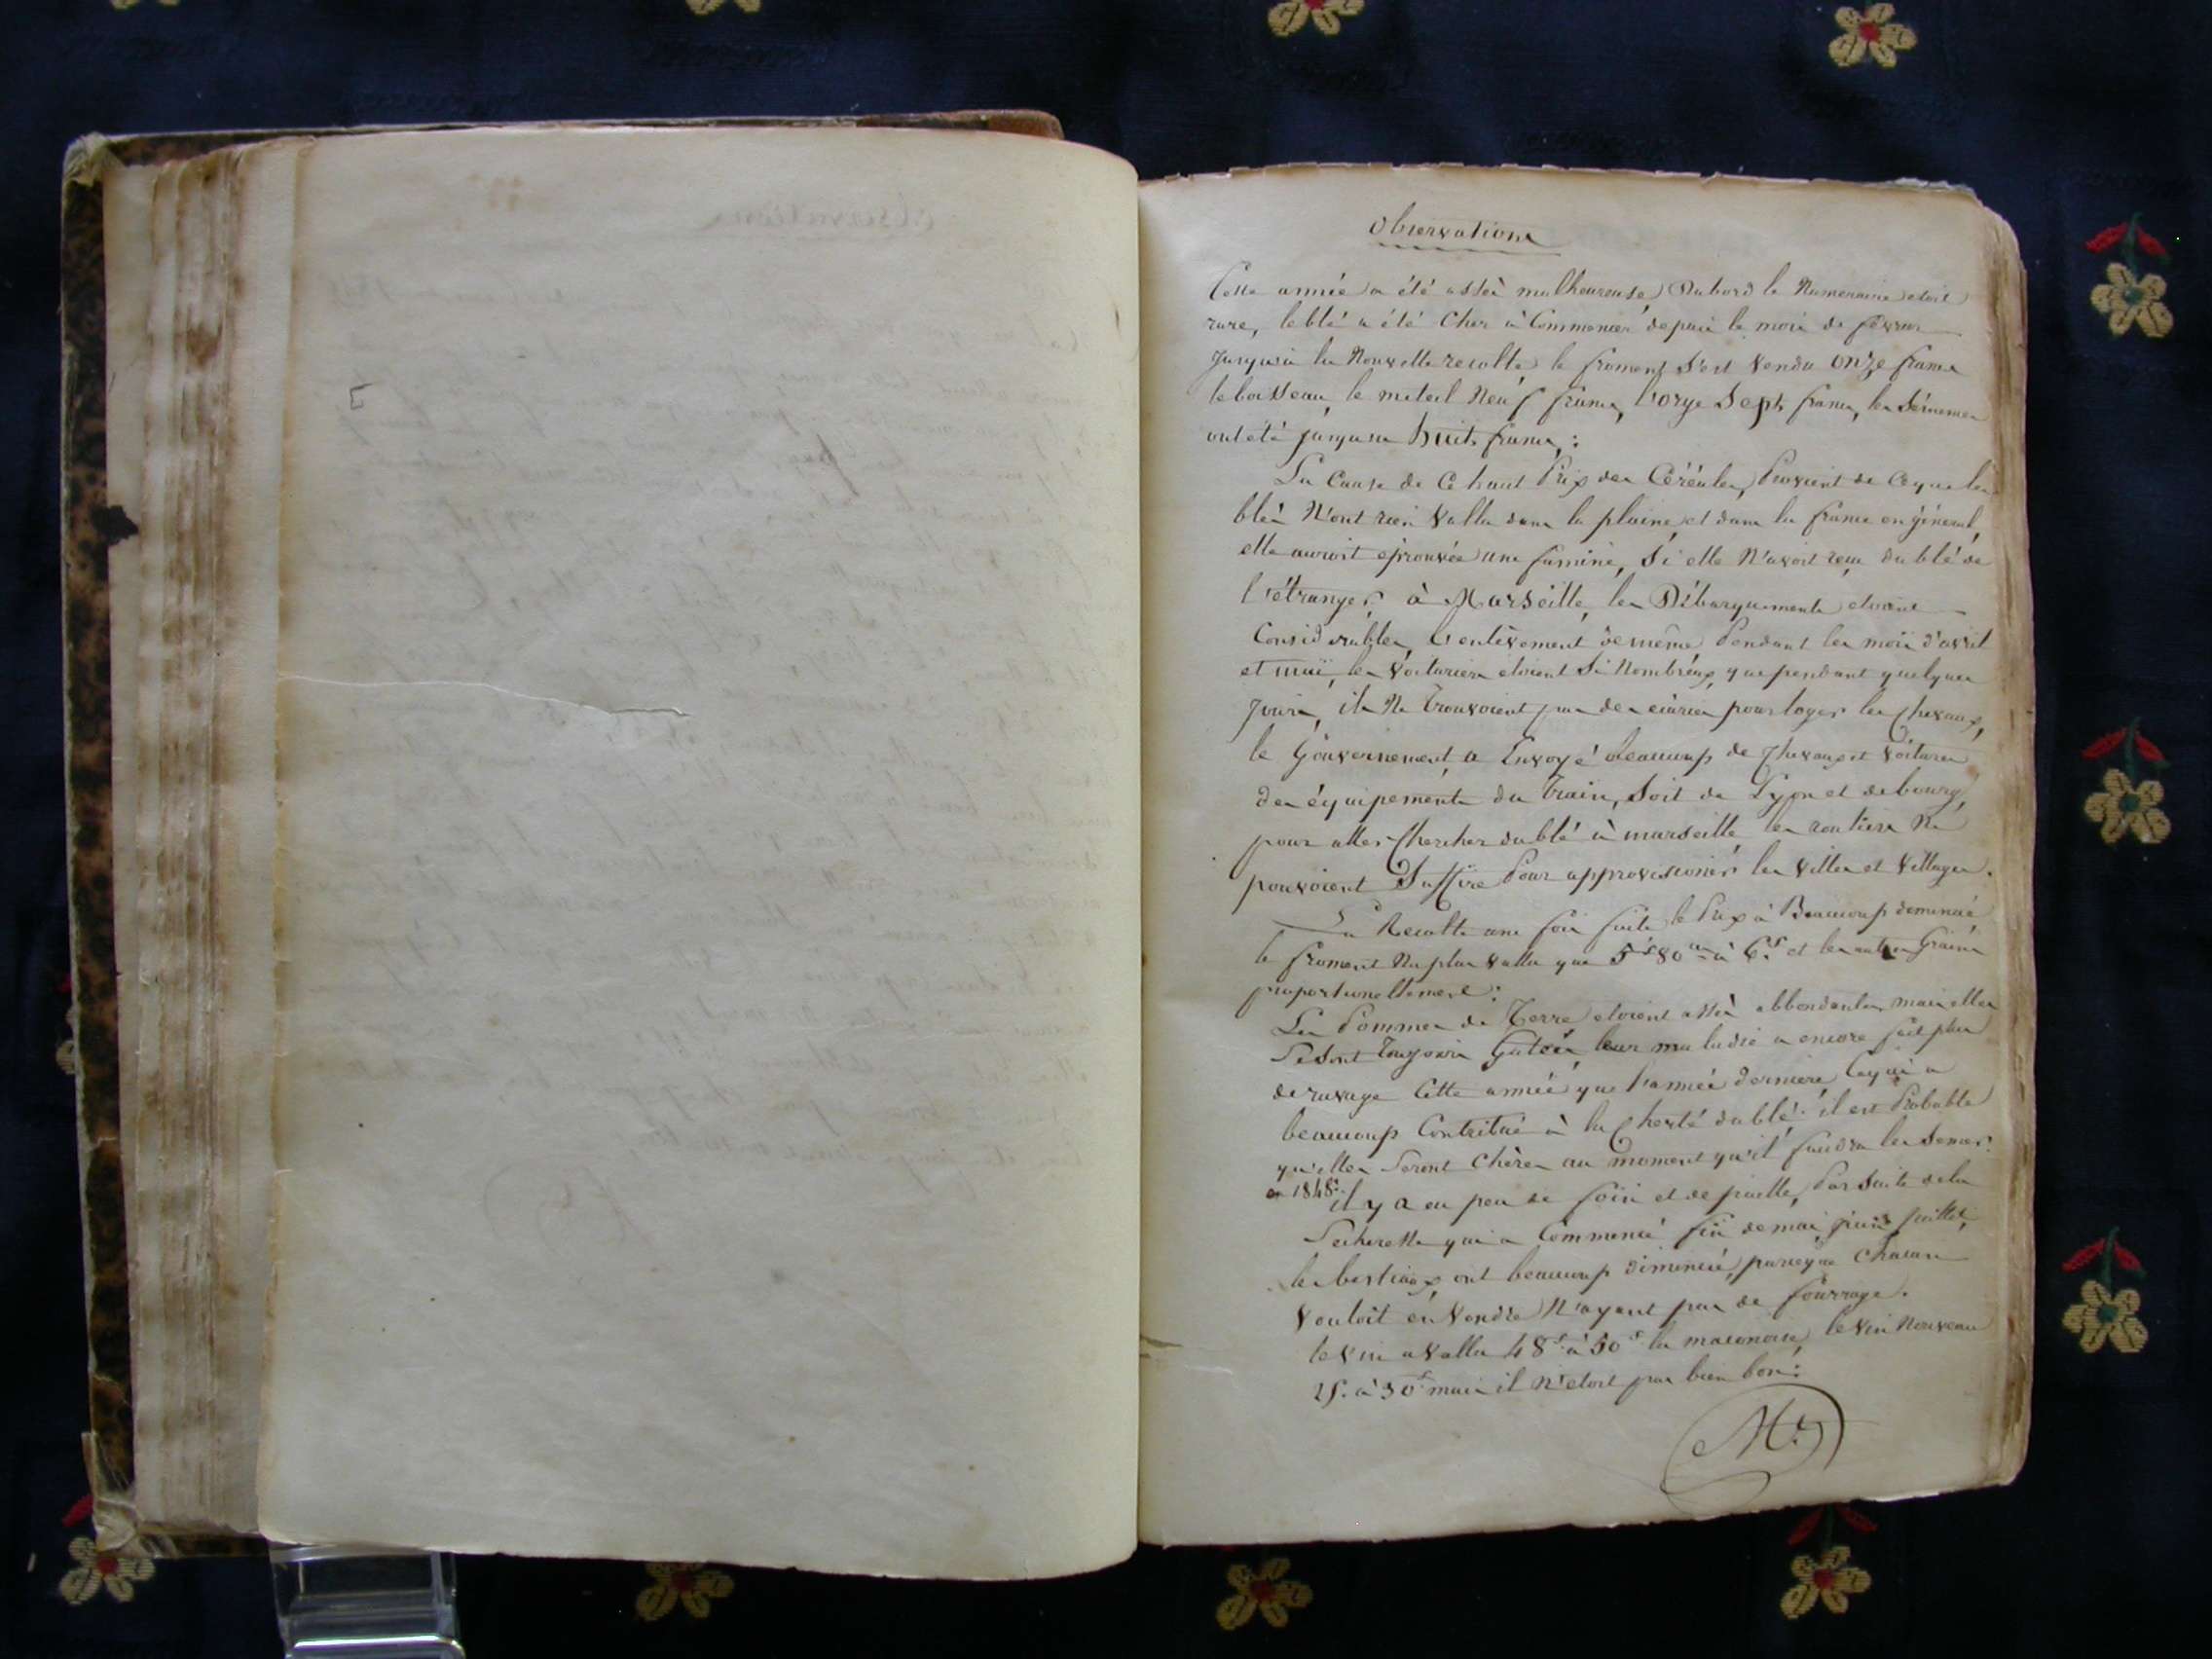 Observations
Cette année a été assès malheureuse, Dabord le Numeraire etoit
rare, le blé a été Cher à Commencer depuis le mois de février
Jusqu'à la Nouvelle recolte, le froment s'est vendu onze francs
le boisseau, le meteil Neuf francs, l'orge Sept francs, les
ont été jusqu'a huit francs;
La Cause de Ce haut Prix des Céréales, Provient de Ceque les
blés N'ont rien vallu dans la plaine, et dans la france en général,
elle auroit éprouvée une famine, Si elle N'avoit reçu du blé de
l'étranger, à Marseille, les Débarquements etoient
Considerables, l'enlèvement de même, Pendant les mois d'avril
et mai, les Voituriers etoient Si Nombreux, que pendant quelques
Jours, ils Ne Trouvoient pas des écuries pour loger les Chevaux,
le Gouvernement a Envoyé beaucoup de Chevaux et Voitures
des équipements du Train, Soit de Lyon et de bourg,
pour aller Chercher du blé à marseille, les routiers Ne
pouvoient Suffire Pour approvisioner les Villes et Villages.
La Recolte une fois faite, le Prix à Beaucoup deminué
le froment Na plus vallu que 5f 80 à 6f et les autres Grains
proportionellement:
Les Pommes de Terre etoient assès abbondantes mais elles
Se sont Toujours Gatées, leur maladie a encore fait plus
de ravage Cette année que l'année derniere, Ce qui a
beaucoup Contribué à la Cherté du blé. il est Probable
qu'elles Seront Chères au moment qu'il faudra les Semer
en 1848.
il y a eu peu de foin et de paille, Par Suite de la
Secheresse qui a Commencé fin de mai, juin, juillet,
les bestiaux, ont beaucoup diminué, parceque Chacun
Vouloit en Vendre N'ayant pas de fourrage.
le vin a vallu 48f à 50f la maconoise, le vin Nouveau
25. à 30f mais il N'etoit pas bien bon: